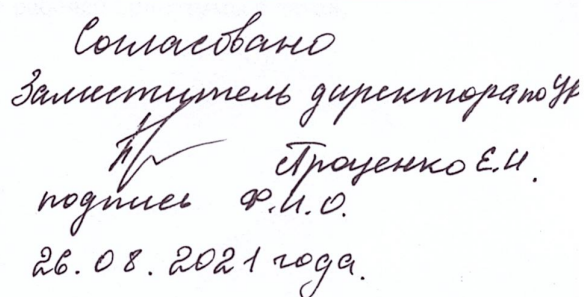 Согласовано
Заместитель директора по УР
Проценко Е.И.
подпись Ф.И.О.
26.08.2021 года.